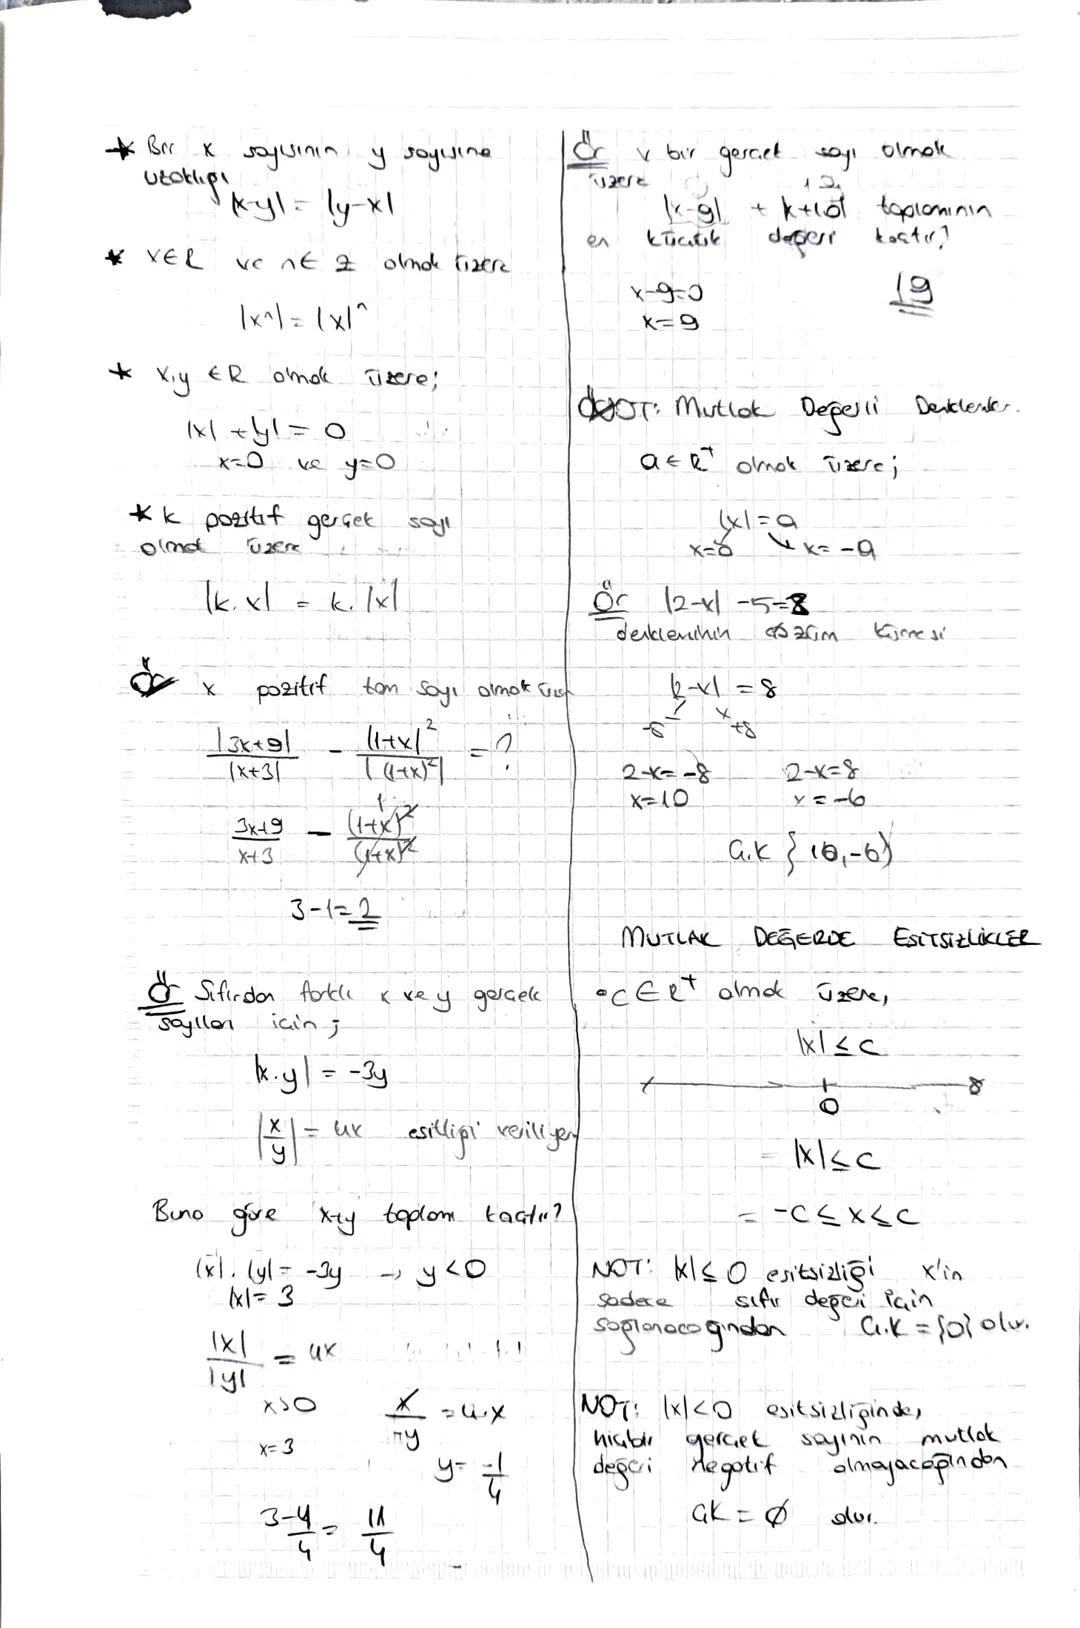 * Bir x sayısının y sayısına
uzaklığı
|x-y| = |y-x|
* x∈R ve n∈Z olmak üzere
|xⁿ| = |x|ⁿ
* x,y ∈R olmak üzere;
|x| + |y| = 0
x=0 ve y=0
* k pozitif gerçek sayı
olmak üzere
|k.x| = k.|x|
Ör x pozitif tam sayı olmak üzere
|3x+9| / |x+3| - |1+x|² / |(1+x)²| = ?
3x+9 / x+3 - (1+x)² / (1+x)²
3-1=2
Ör Sıfırdan farklı x ve y gerçek
sayıları için ;
|x.y| = -3y
|x/y| = 4x eşitliği veriliyor
Buna göre x+y toplamı kaçtır?
|x|.|y| = -3y → y<0
|x|= 3
|x| / |y| = 4x
x>0
x / -y = 4.x
x=3
y= -1/4
3-1/4 = 11/4
Ör x bir gerçek sayı olmak
üzere
|x-9| + |x+10| toplamının
en küçük değeri kaçtır?
x-9=0
19
x=9
NOT: Mutlak Değerli Denklemler.
a ∈ R⁺ olmak üzere;
|x| = a
x=a x= -a
Ör |2-x| -5=8
denkleminin çözüm kümesi
|2-x| = 8
-8 +8
2-x= -8 2-x=8
x=10 x=-6
Ç.K {10,-6}
MUTLAK DEĞERDE EŞİTSİZLİKLER
• C∈R⁺ olmak üzere,
|x| ≤ c
0
|x| ≤ c
= -c ≤ x ≤ c
NOT: |x| ≤ 0 eşitsizliği x'in
sadece sıfır değeri için
sağlanacağından Ç.K = {0} olur.
NOT: |x|<0 eşitsizliğinde,
hiçbir gerçek sayının mutlak
değeri negatif olmayacağından
ÇK = ∅ olur.